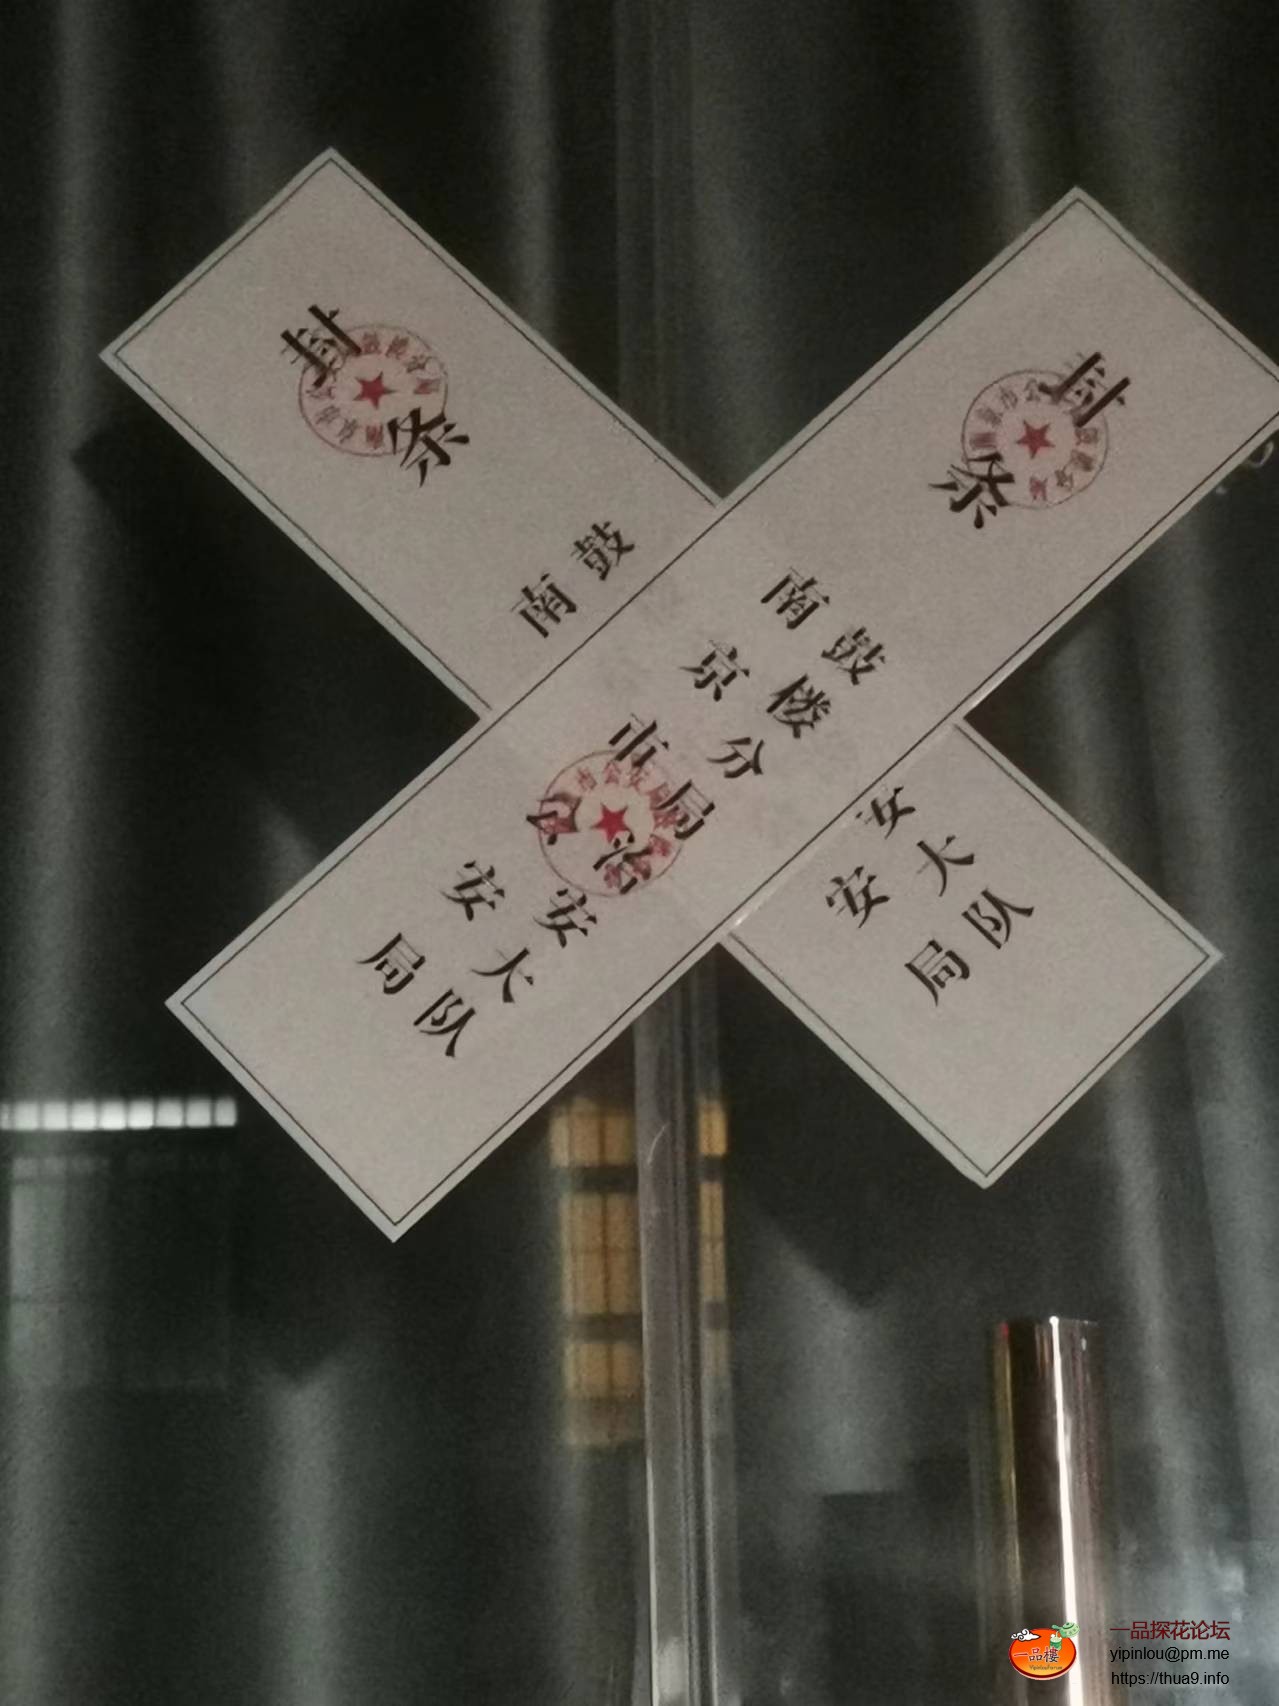 封条
南
鼓
安
局
大
队
安
封条
南京市公安局
鼓楼分局治安大队
一品楼
一品探花论坛
yipinlou@pm.me
https://thua9.info